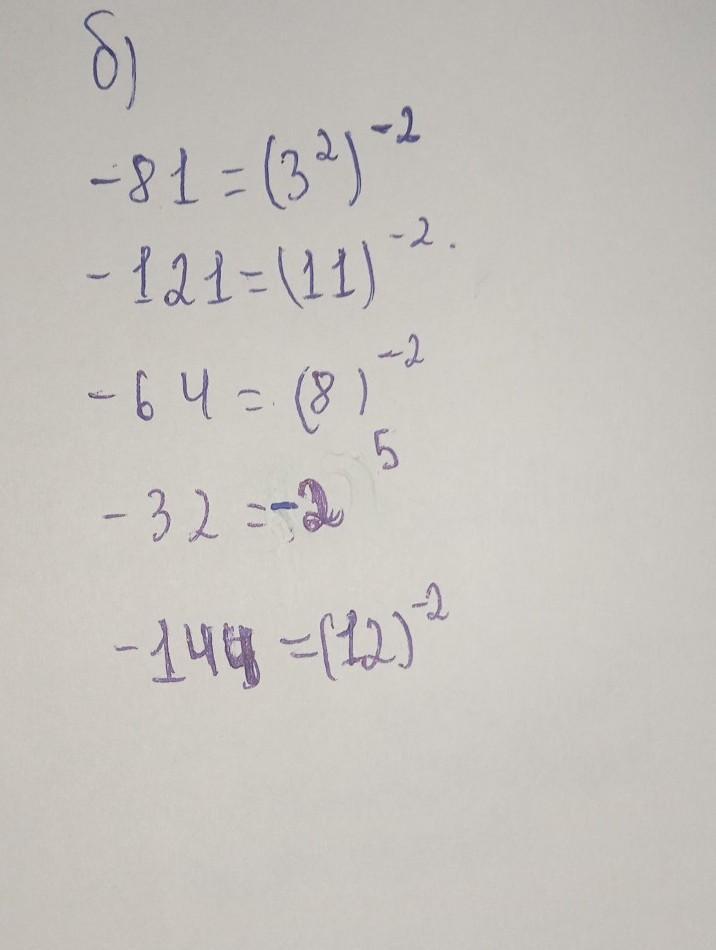 б)
-81 = (3²)⁻²
-121 = (11)⁻².
-64 = (8)⁻²
-32 = -2⁵
-144 = (12)⁻²